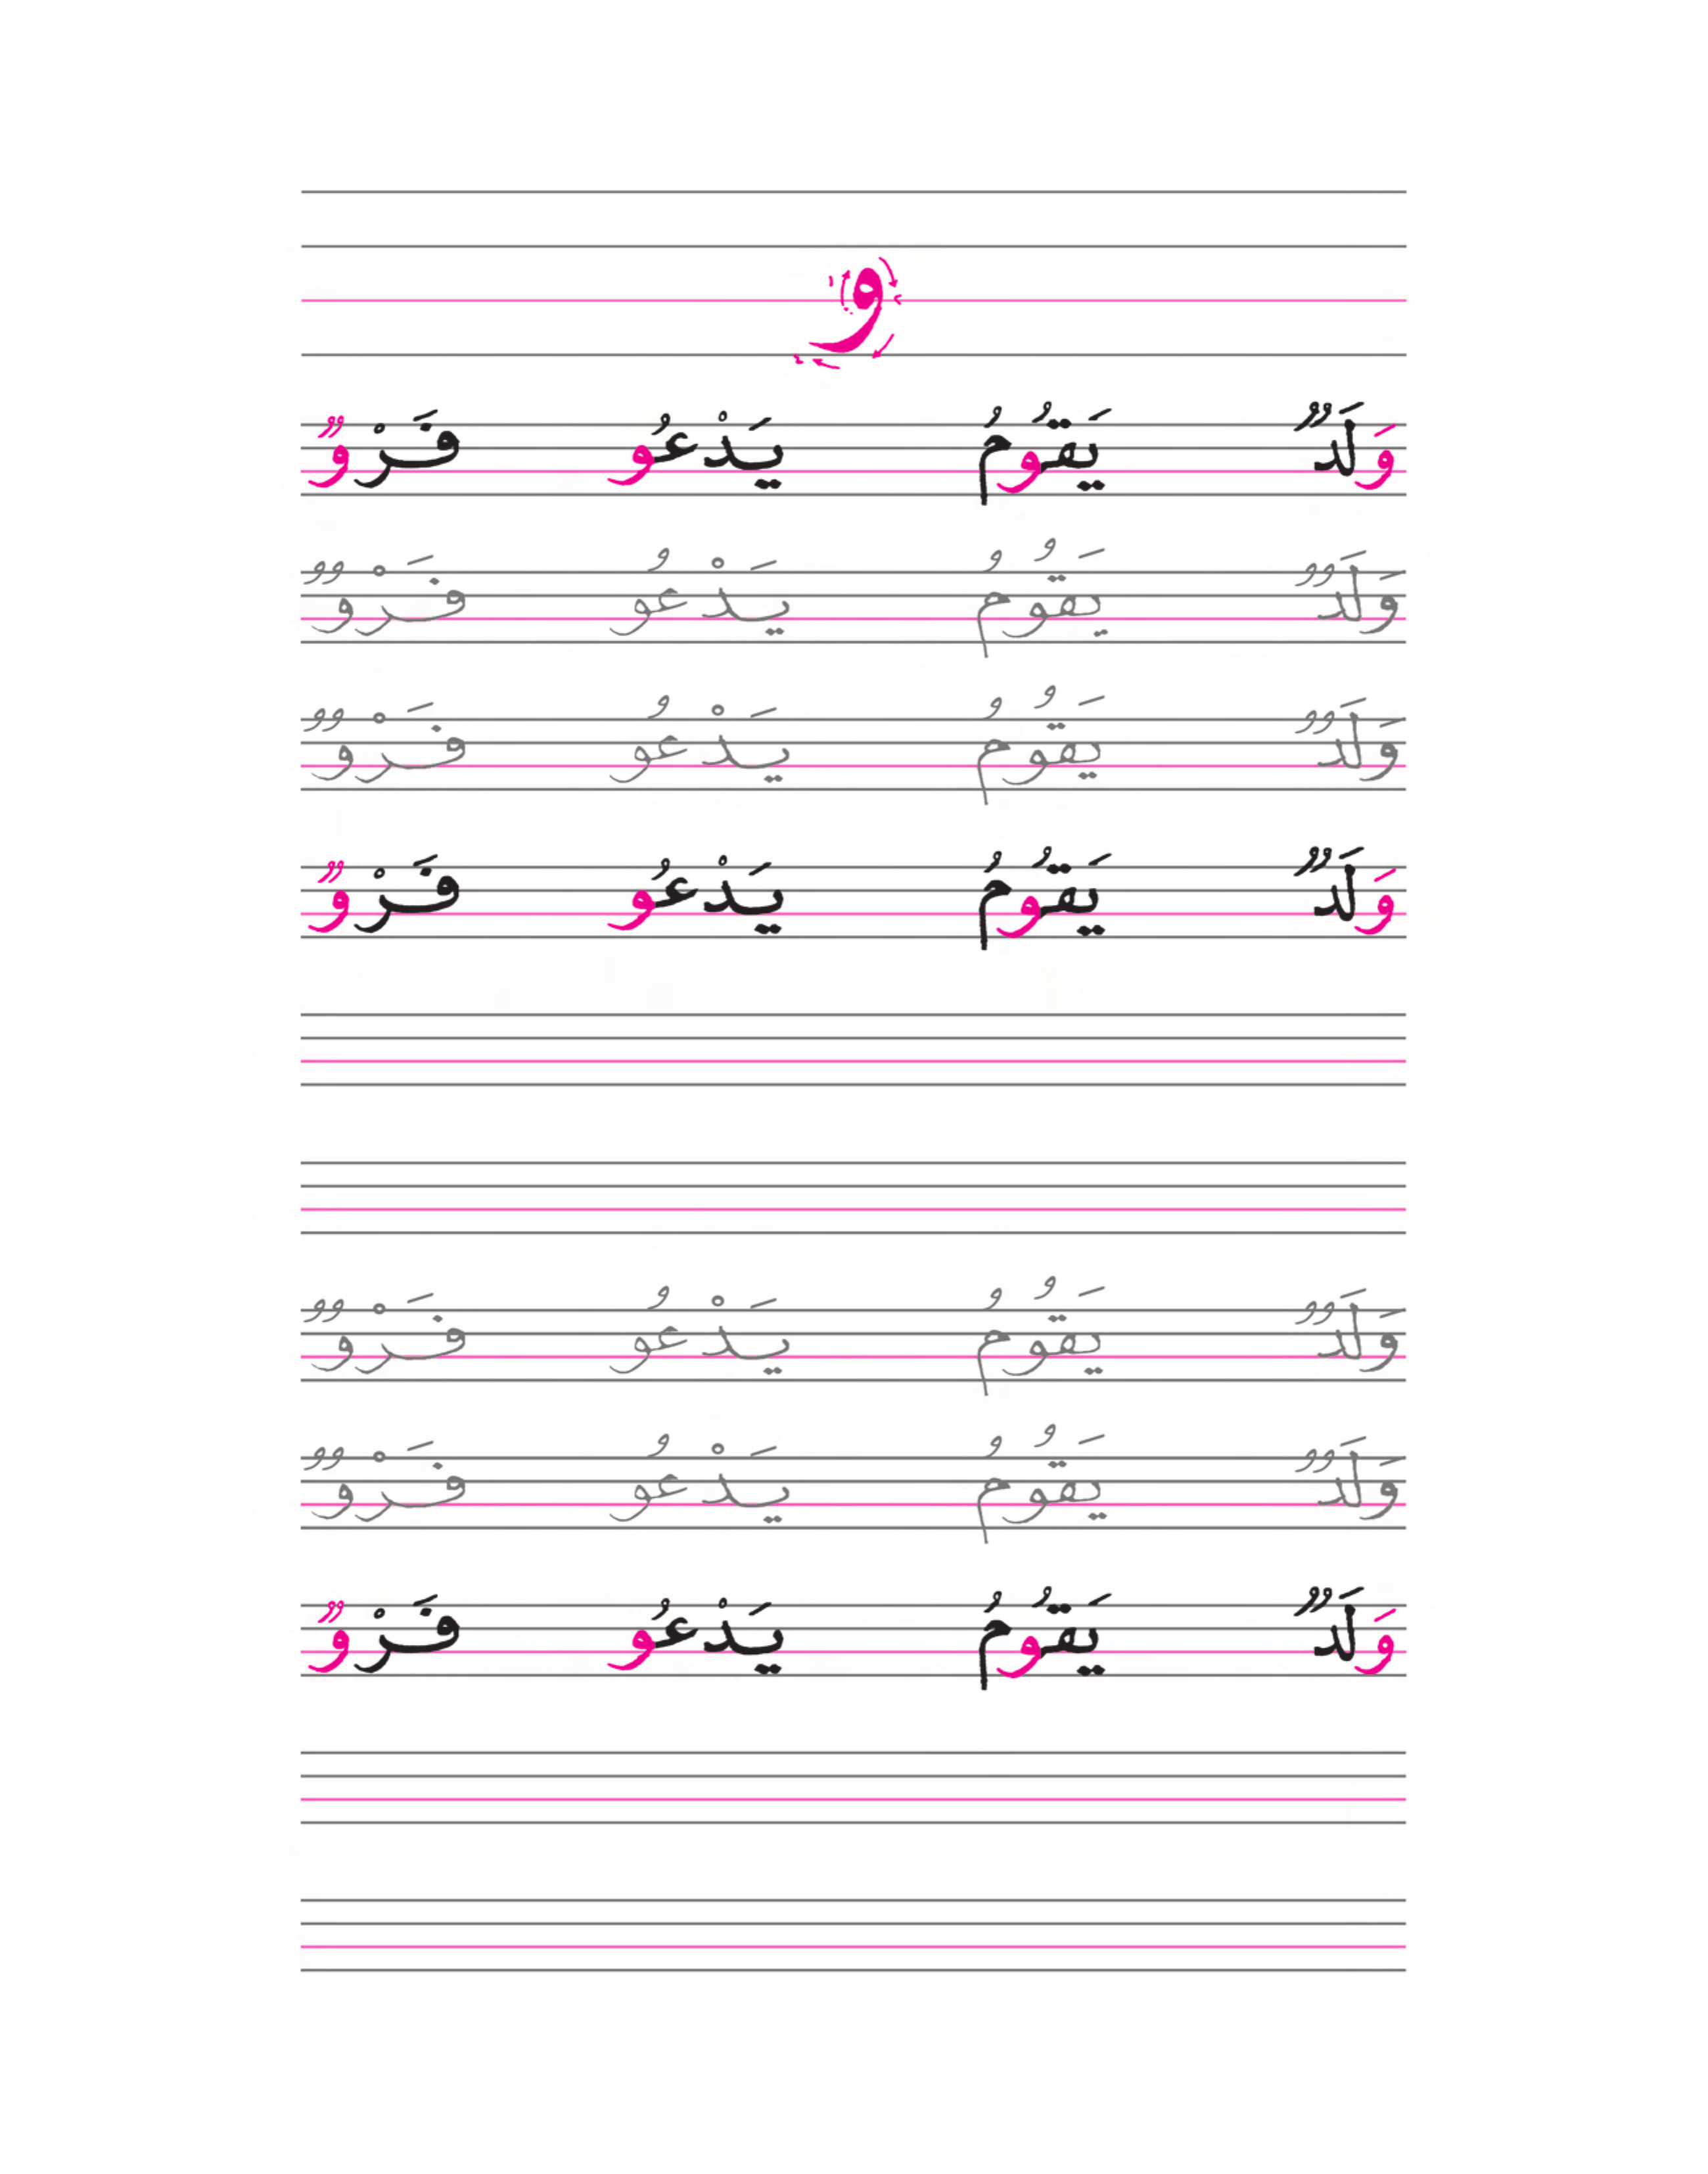 و
وَلَدٌ يَقُومُ يَدْعُو فَرْوٌ
وَلَدٌ يَقُومُ يَدْعُو فَرْوٌ
وَلَدٌ يَقُومُ يَدْعُو فَرْوٌ
وَلَدٌ يَقُومُ يَدْعُو فَرْوٌ
وَلَدٌ يَقُومُ يَدْعُو فَرْوٌ
وَلَدٌ يَقُومُ يَدْعُو فَرْوٌ
وَلَدٌ يَقُومُ يَدْعُو فَرْوٌ